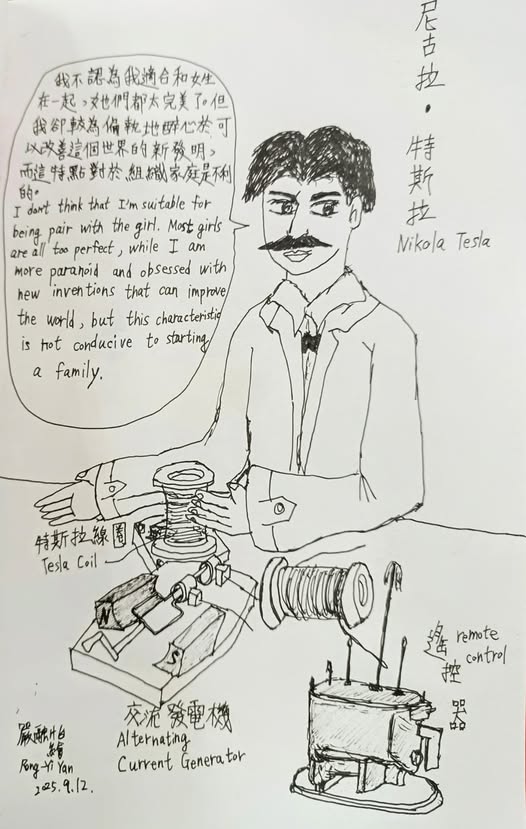 尼古拉·特斯拉
Nikola Tesla
我不認為我適合和女生
在一起，她們都太完美了。但
我卻較為偏執地醉心於可
以改善這個世界的新發明，
而這特點對於組織家庭是不利
的。
I don't think that I'm suitable for
being pair with the girl. Most girls
are all too perfect, while I am
more paranoid and obsessed with
new inventions that can improve
the world, but this characteristic
is not conducive to starting
a family.
特斯拉線圈
Tesla Coil
N
S
交流發電機
Alternating
Current Generator
遙控器
remote
control
繪
Rong-Yi Yan
2025.9.12.